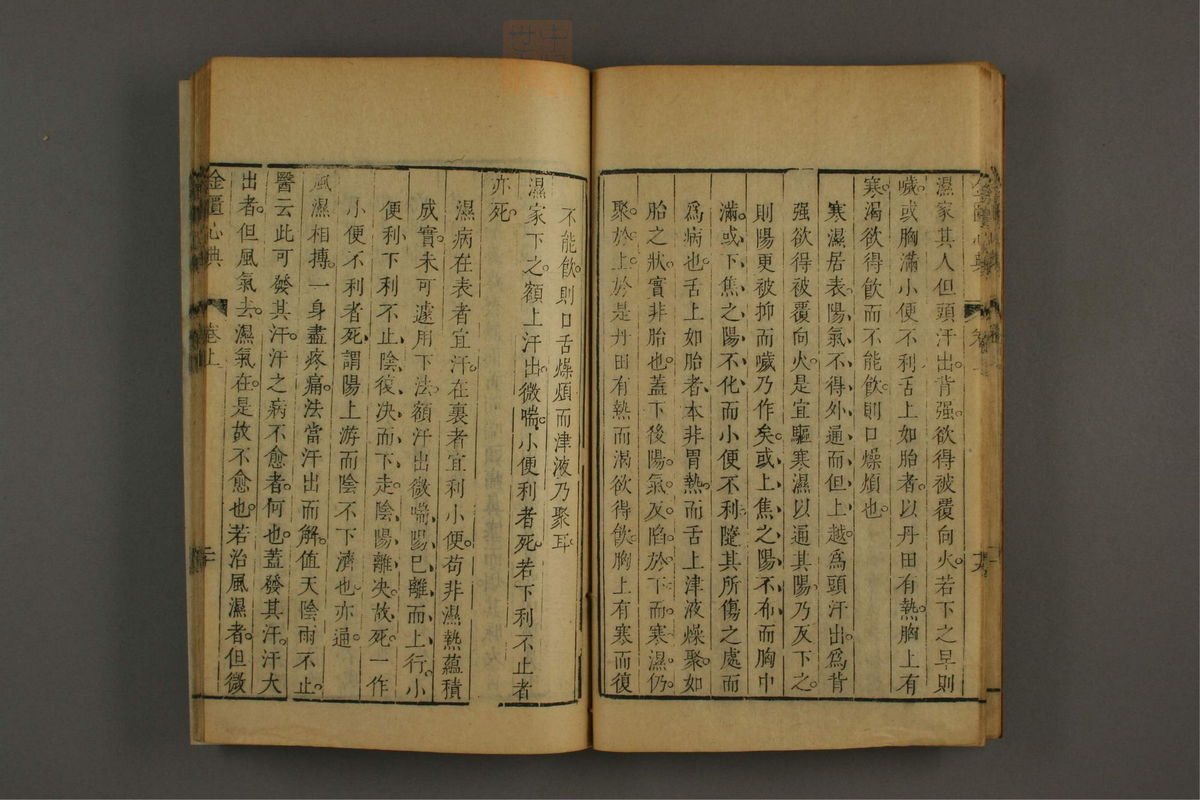 濕家其人但頭汗出背强欲得被覆向火若下之早則
噦或胸滿小便不利舌上如胎者以丹田有熱胸上有
寒渴欲得飮而不能飮則口燥煩也
寒濕居表陽氣不得外通而但上越爲頭汗出爲背
强欲得被覆向火是宜驅寒濕以通其陽乃反下之
則陽更被抑而噦乃作矣或上焦之陽不布而胸中
滿或下焦之陽不化而小便不利隨其所傷之處而
爲病也舌上如胎者本非胃熱而舌上津液燥聚如
胎之狀實非胎也蓋下後陽氣反陷於下而寒濕仍
聚於上於是丹田有熱而渴欲得飮胸上有寒而復
不能飮則口舌燥煩而津液乃聚耳
濕家下之額上汗出微喘小便利者死若下利不止者
亦死
濕病在表者宜汗在裏者宜利小便苟非濕熱蘊積
成實未可遽用下法額汗出微喘陽已離而上行小
便利下利不止陰復决而下走陰陽離决故死一作
小便不利者死謂陽上游而陰不下濟也亦通
風濕相搏一身盡疼痛法當汗出而解值天陰雨不止
醫云此可發其汗汗之病不愈者何也蓋發其汗汗大
出者但風氣去濕氣在是故不愈也若治風濕者但微
金匱心典
卷上
二十